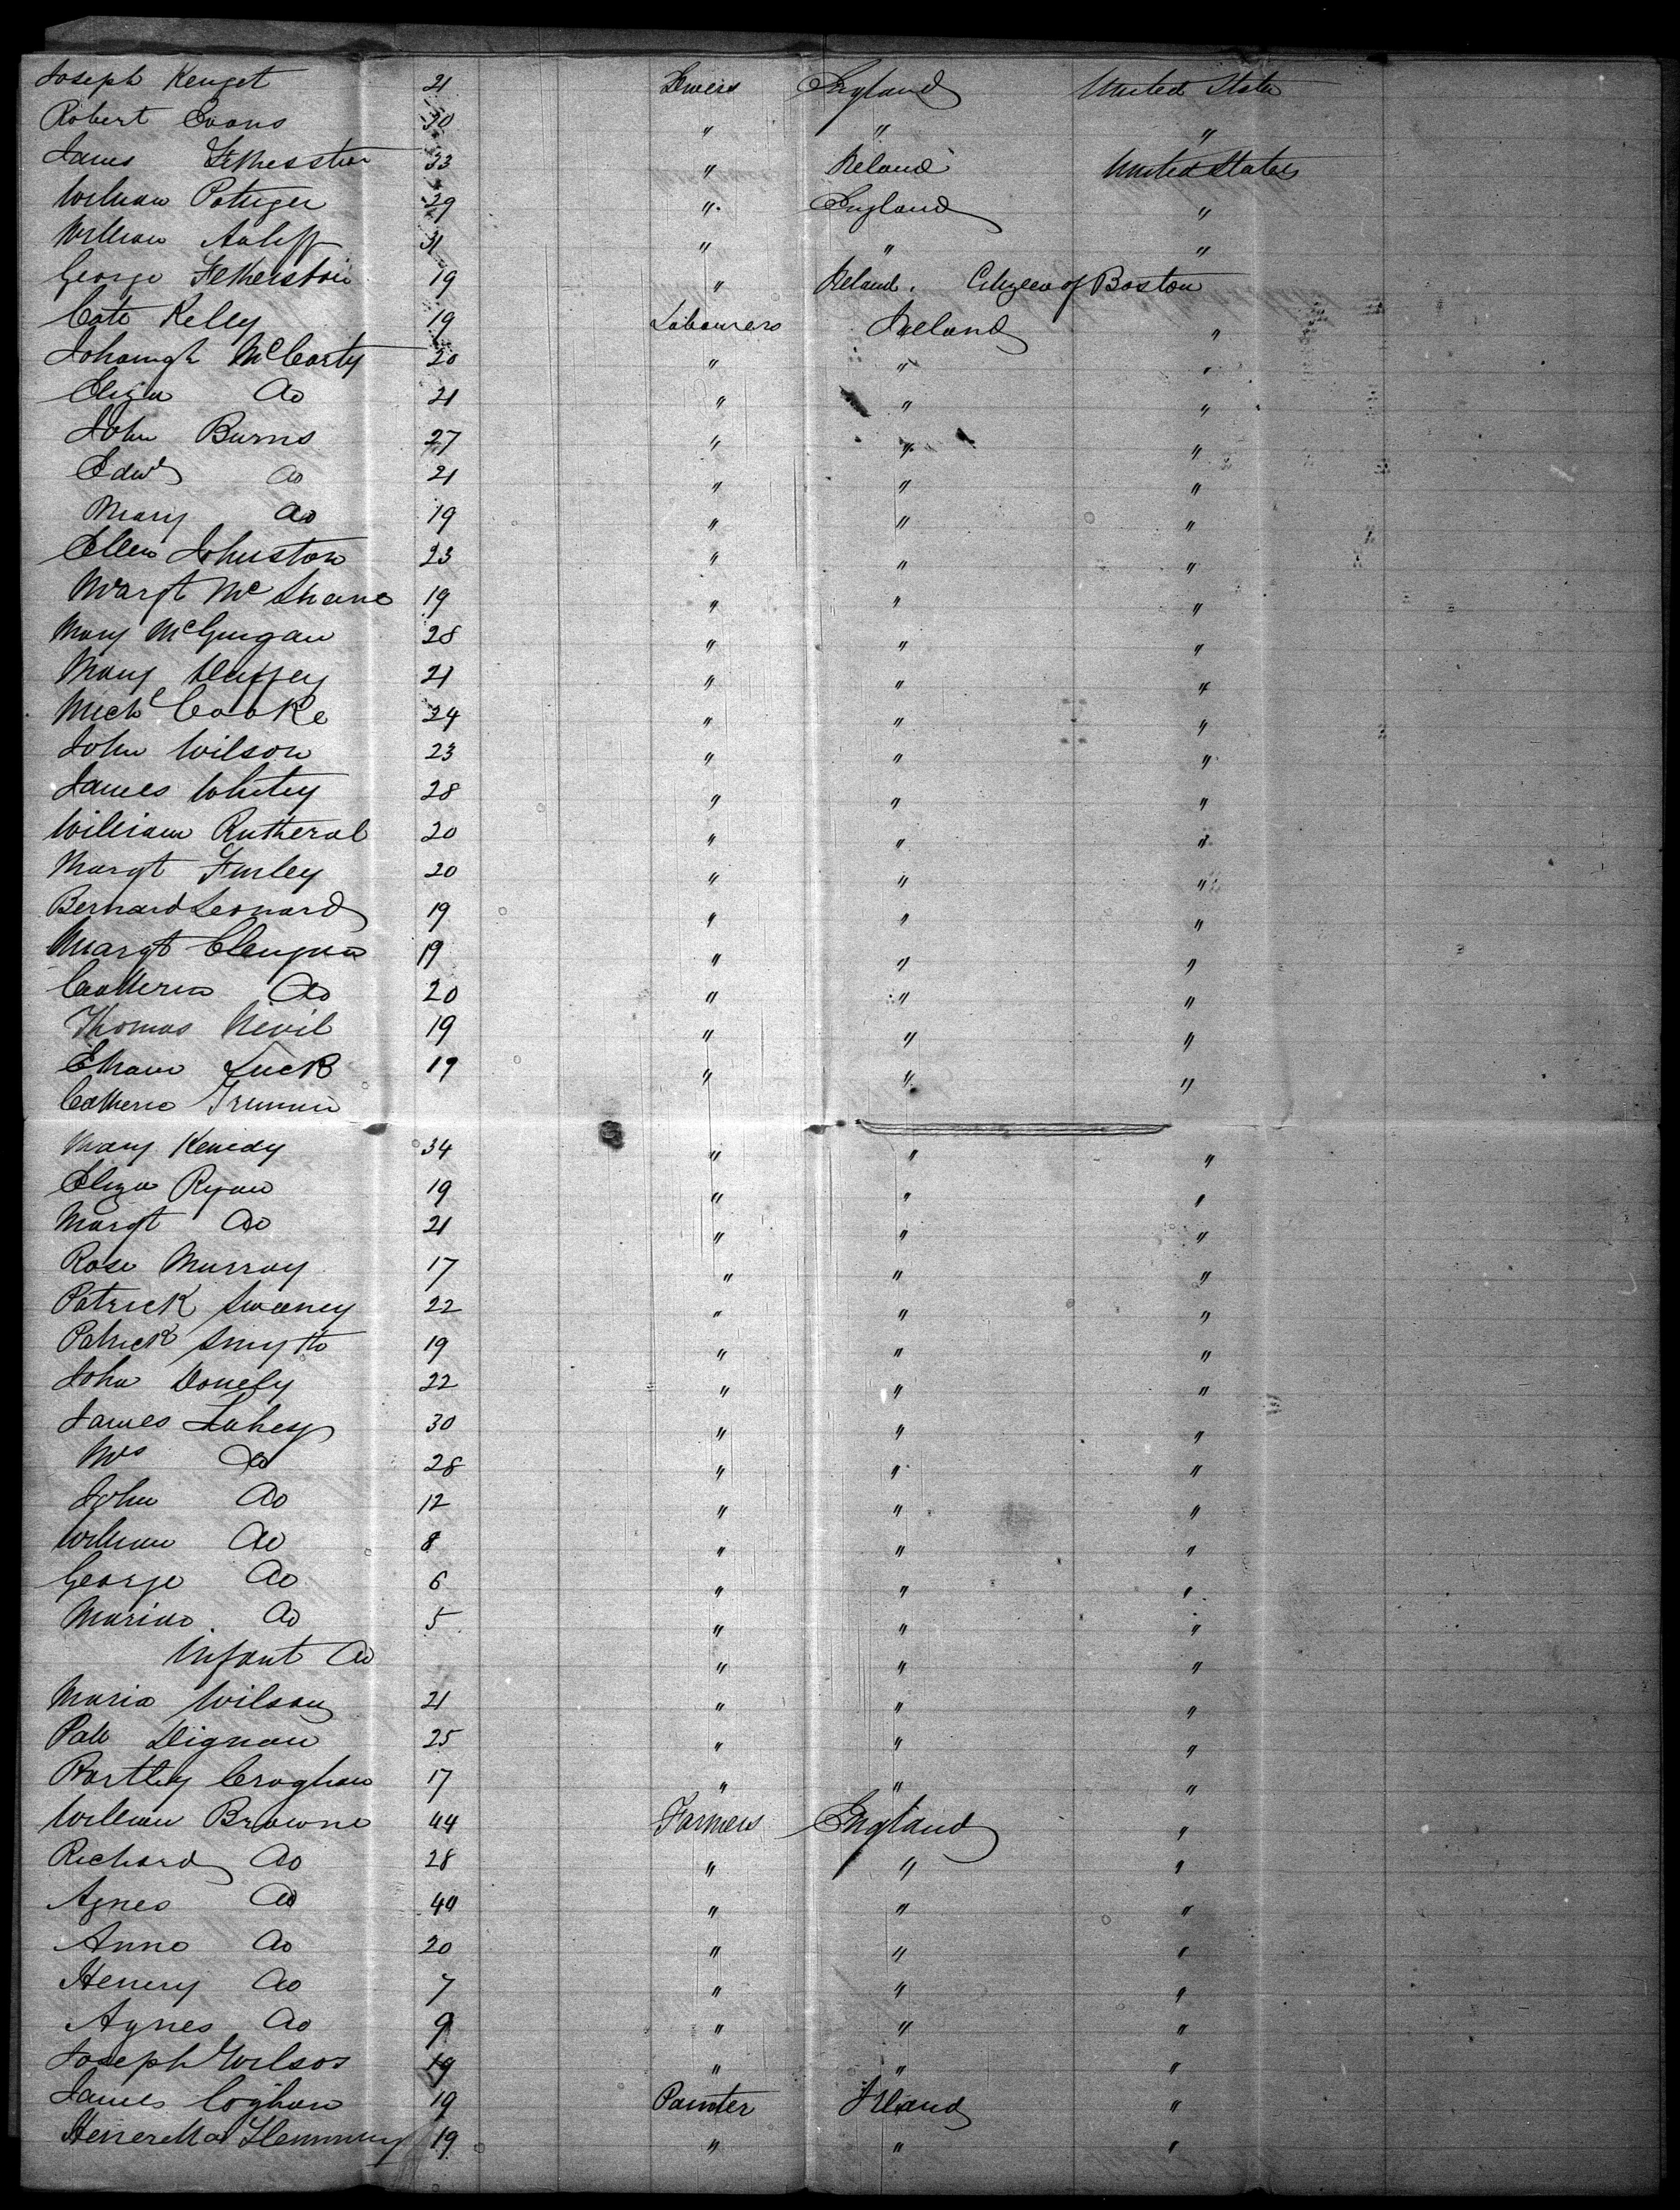 Joseph Kenget 21 England United States
Robert Evans 30 " " "
James 33 " Ireland United States
William 29 " England "
William 31 " " "
George Fetherston 19 " Ireland. Citizen of Boston
Cate Kelly 19 Labourers Ireland "
Johanngh McCarty 20 " " "
Eliza do 21 " " "
John Burns 27 " " "
Edwd do 21 " " "
Mary do 19 " " "
Ellen Johnston 23 " " "
Margt McShane 19 " " "
Mary McGuigan 28 " " "
Mary Duffey 21 " " "
Michl Cooke 24 " " "
John Wilson 23 " " "
James Whitey 28 " " "
William 20 " " "
Margt Furley 20 " " "
Bernard Leonard 19 " " "
Margt 19 " " "
Catherin do 20 " " "
Thomas Nevil 19 " " "
Luck 19 " " "
Catherie
Mary Kenedy 34 " " "
Eliza Ryan 19 " " "
Margt do 21 " " "
Rose Murray 17 " " "
Patrick Sweeney 22 " " "
Patrick Smyth 19 " " "
John Donely 22 " " "
James Lahey 30 " " "
Mrs do 28 " " "
John do 12 " " "
William do 8 " " "
George do 6 " " "
do 5 " " "
Infant do " " "
Maria Wilson 21 " " "
Patt Dignan 25 " " "
Bartley Croghan 17 " " "
William Browne 44 Farmers England "
Richard do 28 " " "
Agnes do 40 " " "
Anne do 20 " " "
Henery do 7 " " "
Agnes do 9 " " "
Joseph Wilson 19 " " "
James Coghan 19 Painter Ireland "
Flemming 19 " " "